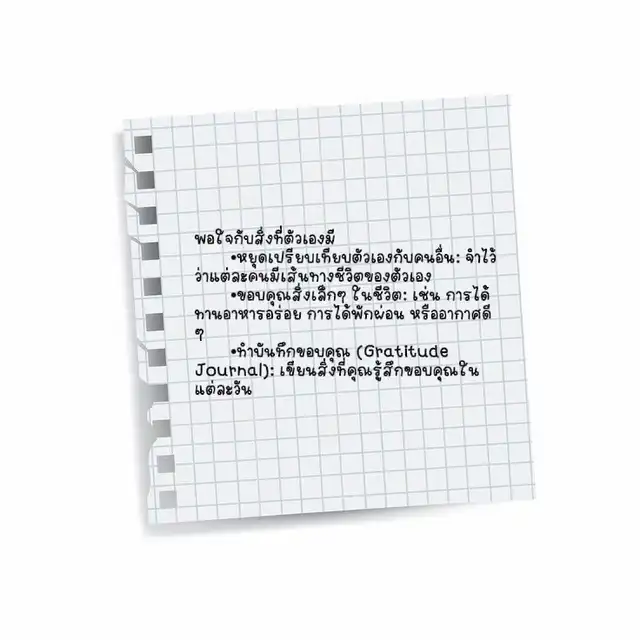 พอใจกับสิ่งที่ตัวเองมี
•หยุดเปรียบเทียบตัวเองกับคนอื่น: จำไว้
ว่าแต่ละคนมีเส้นทางชีวิตของตัวเอง
•ขอบคุณสิ่งเล็กๆ ในชีวิต: เช่น การได้
ทานอาหารอร่อย การได้พักผ่อน หรืออากาศดี
ๆ
•ทำบันทึกขอบคุณ (Gratitude
Journal): เขียนสิ่งที่คุณรู้สึกขอบคุณใน
แต่ละวัน